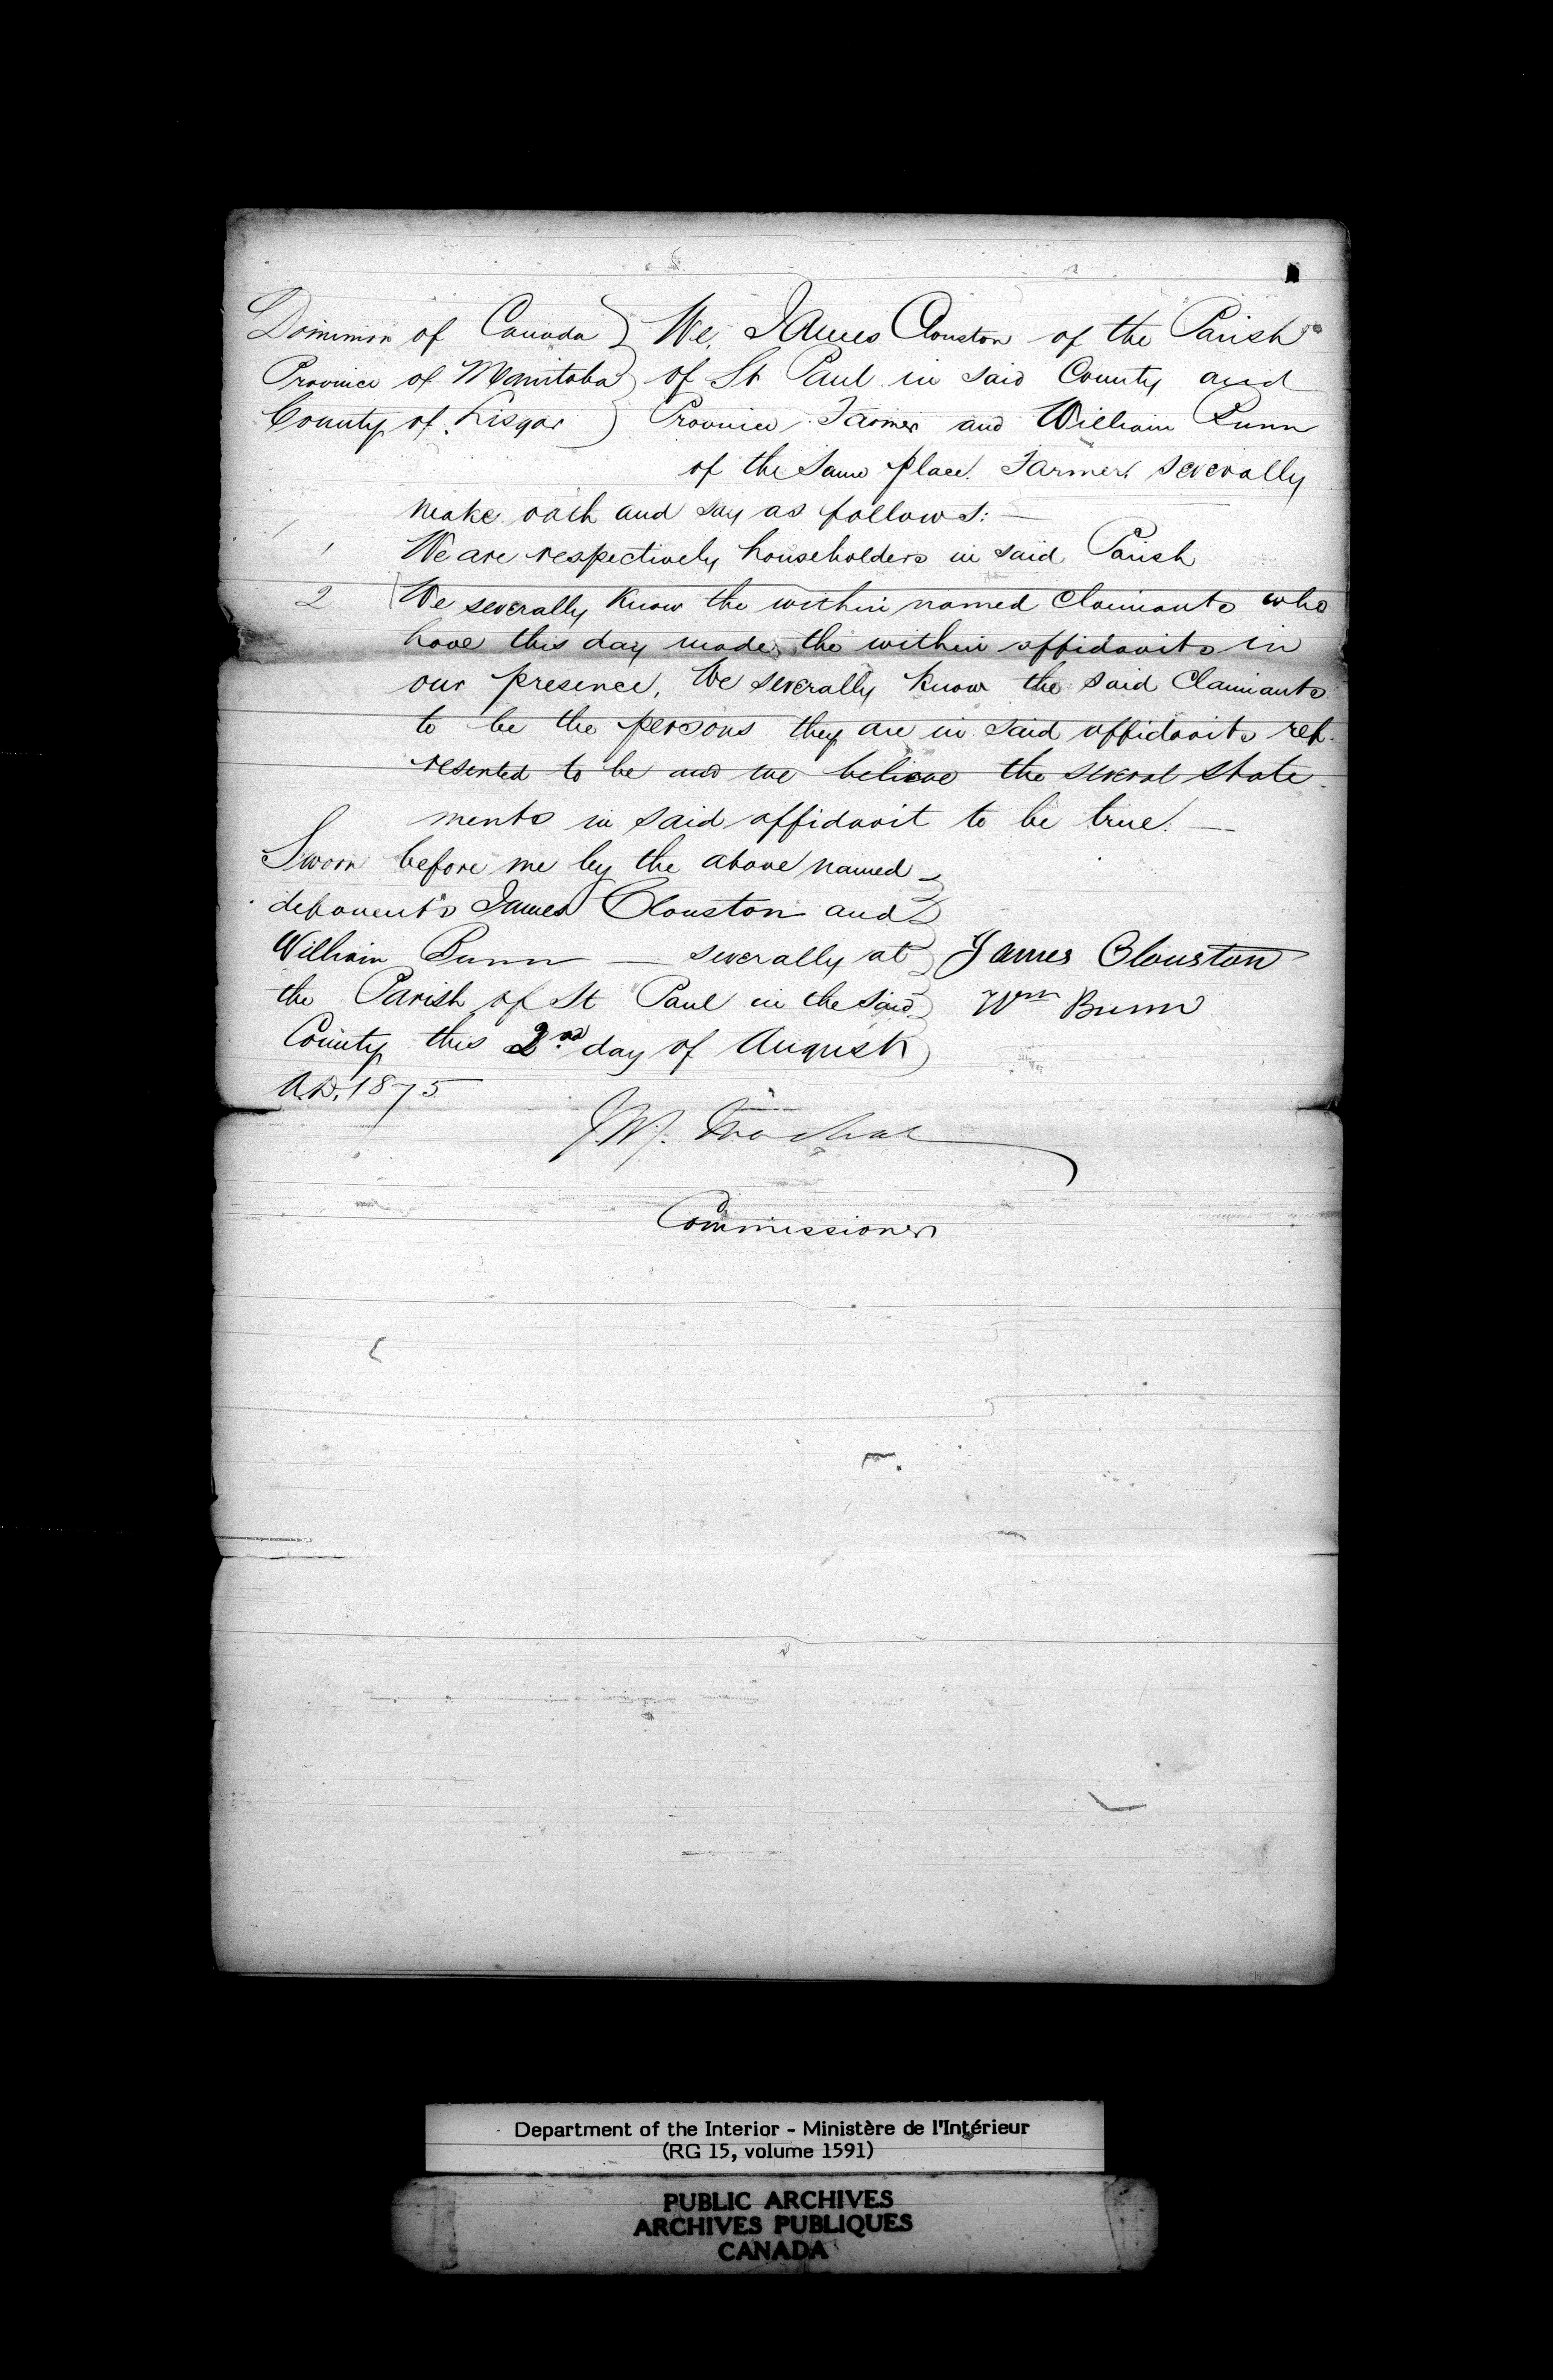 Dominion of Canada } We, James Clouston of the Parish
Province of Manitoba } of St Paul in said County and
County of Lisgar } Province, Farmer and William Bunn
of the same place. Farmer, severally
make oath and say as follows: —
1 We are respectively householders in said Parish
2 We severally know the within named Claimants who
have this day made the within affidavits in
our presence, We severally know the said Claimants
to be the persons they are in said affidavits rep-
resented to be and we believe the several state
ments in said affidavit to be true. —
Sworn before me by the above named
deponents James Clouston and
William Bunn — severally at James Clouston
the Parish of St Paul in the said Wm Bunn
County this 2nd day of August
A.D. 1875
J.W.
Commissioner
Department of the Interior - Ministère de l'Intérieur
(RG 15, volume 1591)
PUBLIC ARCHIVES
ARCHIVES PUBLIQUES
CANADA